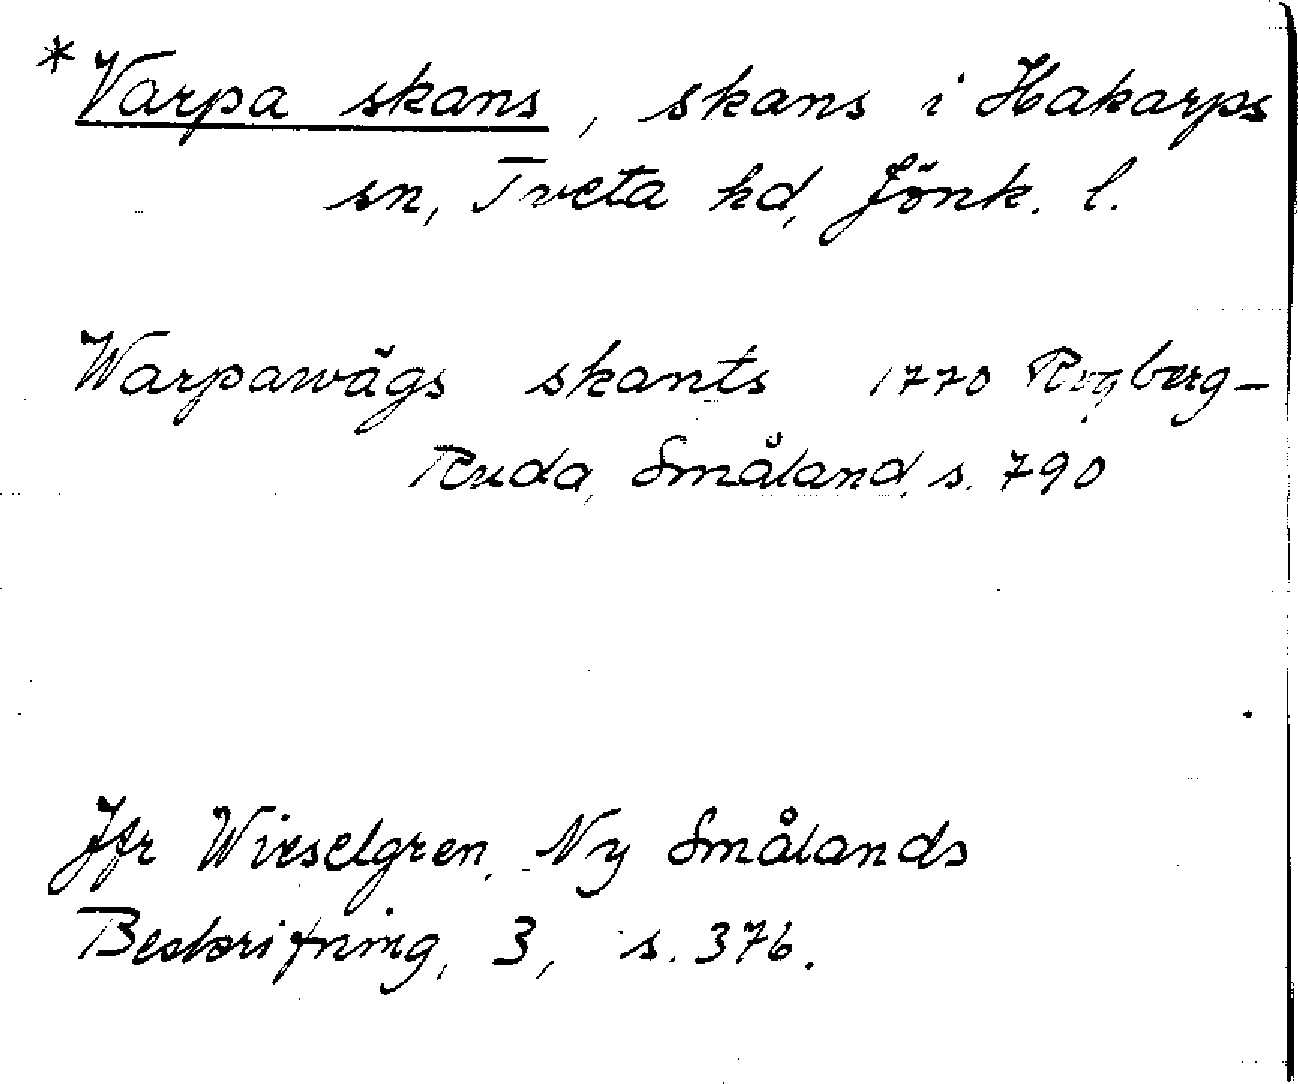 *Varpa skans, skans i Hakarps
sn, Tveta hd, Jönk. l.
Warpawägs skants 1770 Rogberg-
Ruda, Småland, s. 790
Jfr Wieselgren, Ny Smålands
Beskrifning, 3, s. 376.